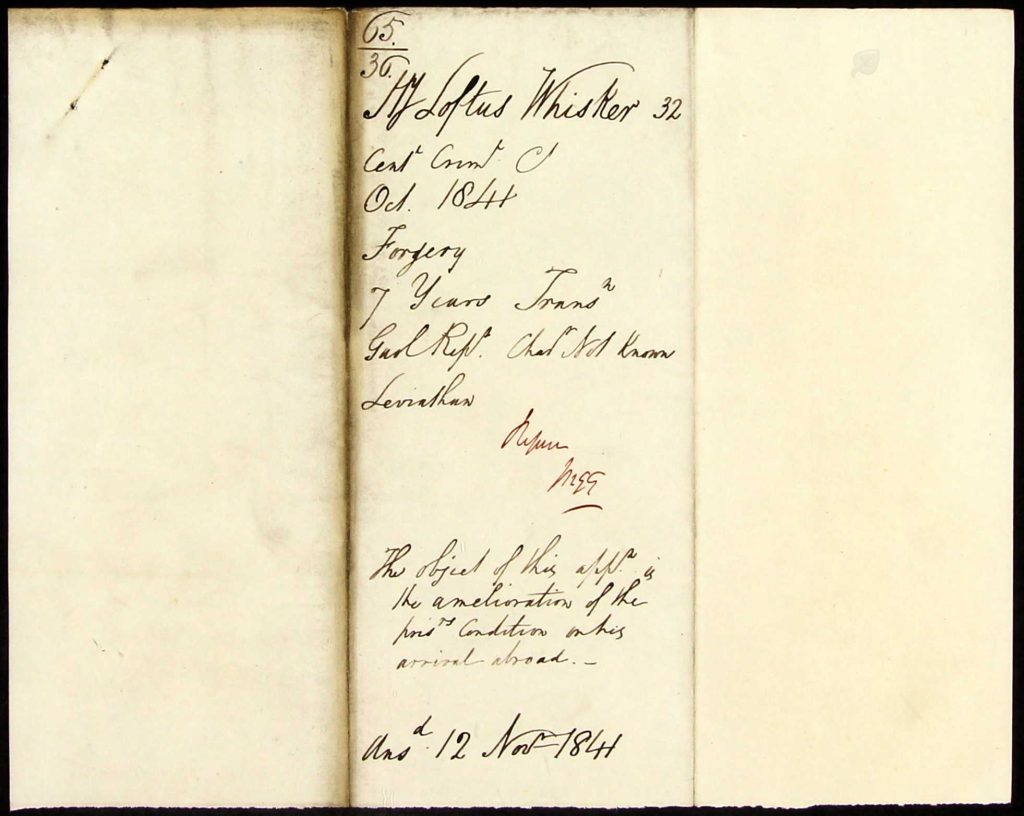 65.
36.
Hy Loftus Whisker 32
Centl Criml Ct
Oct. 1841
Forgery
7 Years Transn
Gaol Rept. Char Not Known
Leviathan
The object of this appn is
the amelioration of the
prisrs Condition on his
arrival abroad. —
Ansd. 12 Novr 1841